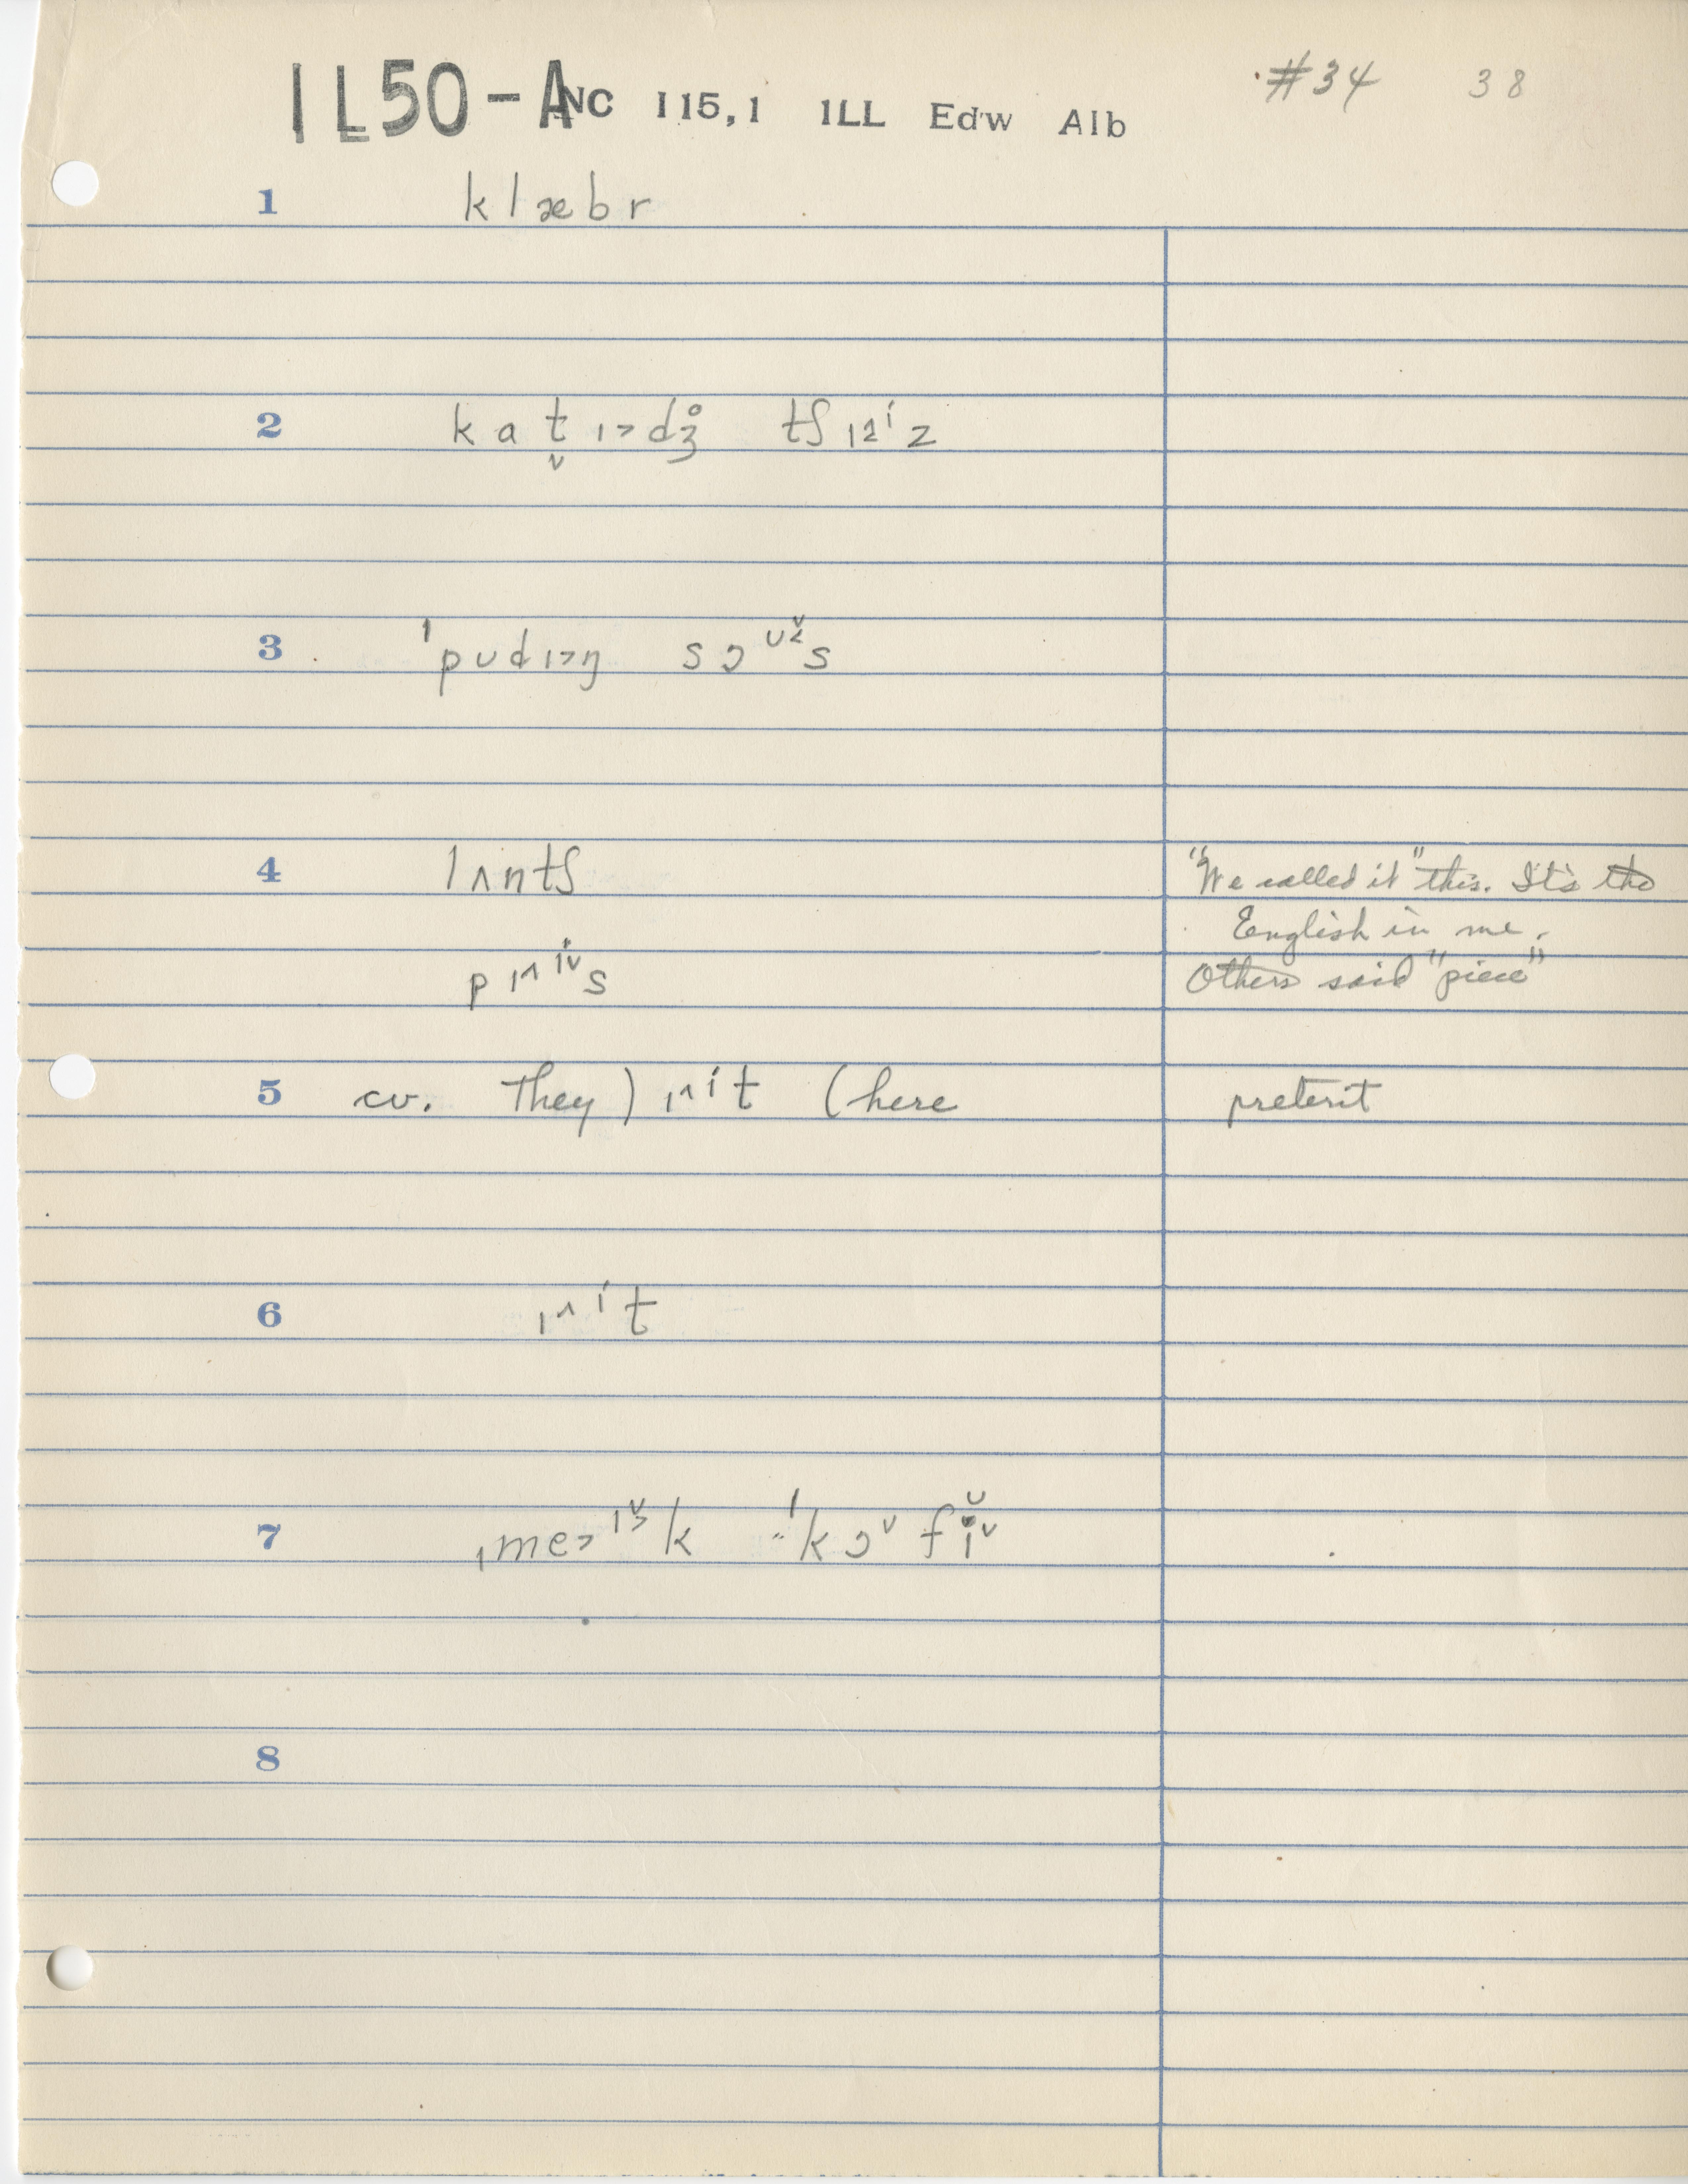 IL50-A NC 115,1 ILL Edw Alb #34 38
1 klæbr
2 kat̬ɪ˃dʒ̊ tʃɪ˃ⁱz
3 ˈpʊdɪ˃ŋ sɔᶷ̌s
4 lʌntʃ "We called it" this. It's the
English in me.
pɪ˄ⁱ˅s Others said "piece"
5 cv. They) ɪ˄ⁱt (here preterit
6 ɪ˄ⁱt
7 ˌme˃ᶦ˅˃k ˈkɔ˅fi˅
8